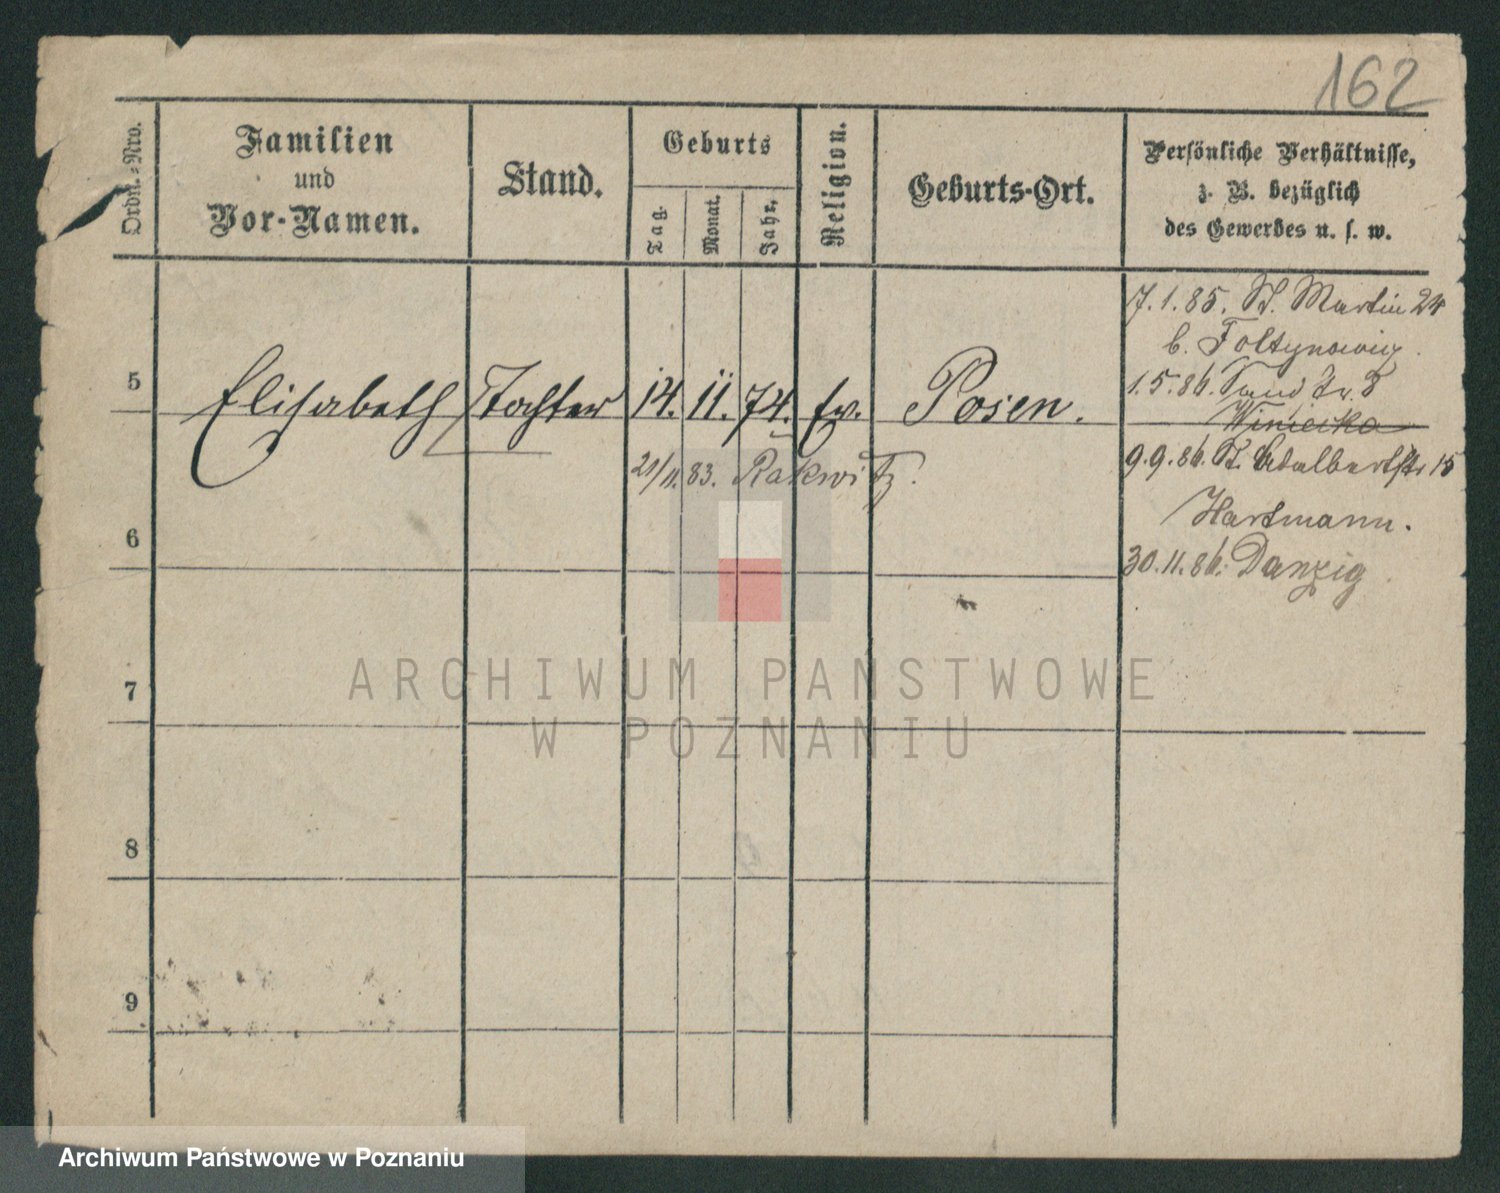 162
Ordn.-Nro.
Familien
und
Vor-Namen.
Stand.
Geburts
Tag.
Monat.
Jahr.
Religion.
Geburts-Ort.
Persönliche Verhältnisse,
z. B. bezüglich
des Gewerbes u. s. w.
7.1.85. St. Martin 24
b. Foltynowicz.
5
Elisabeth Tochter 14. 11. 74. Ev. Posen.
1.5.86. Sand Str. 8
Winiecka
21/11.83. Rakwitz.
9.9.86. St. Adalbertstr 15
Hartmann.
6
30.11.86. Danzig
7
8
9
ARCHIWUM PAŃSTWOWE
W POZNANIU
Archiwum Państwowe w Poznaniu